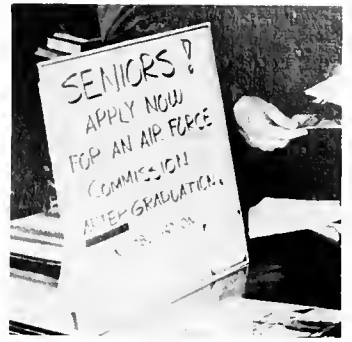 SENIORS!
APPLY NOW
FOR AN AIR FORCE
COMMISSION
AFTER GRADUATION.